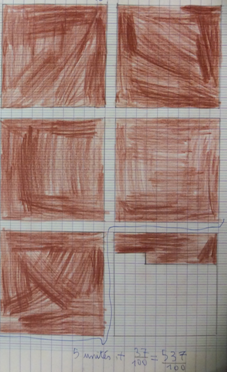 5 unités + 37/100 = 537/100